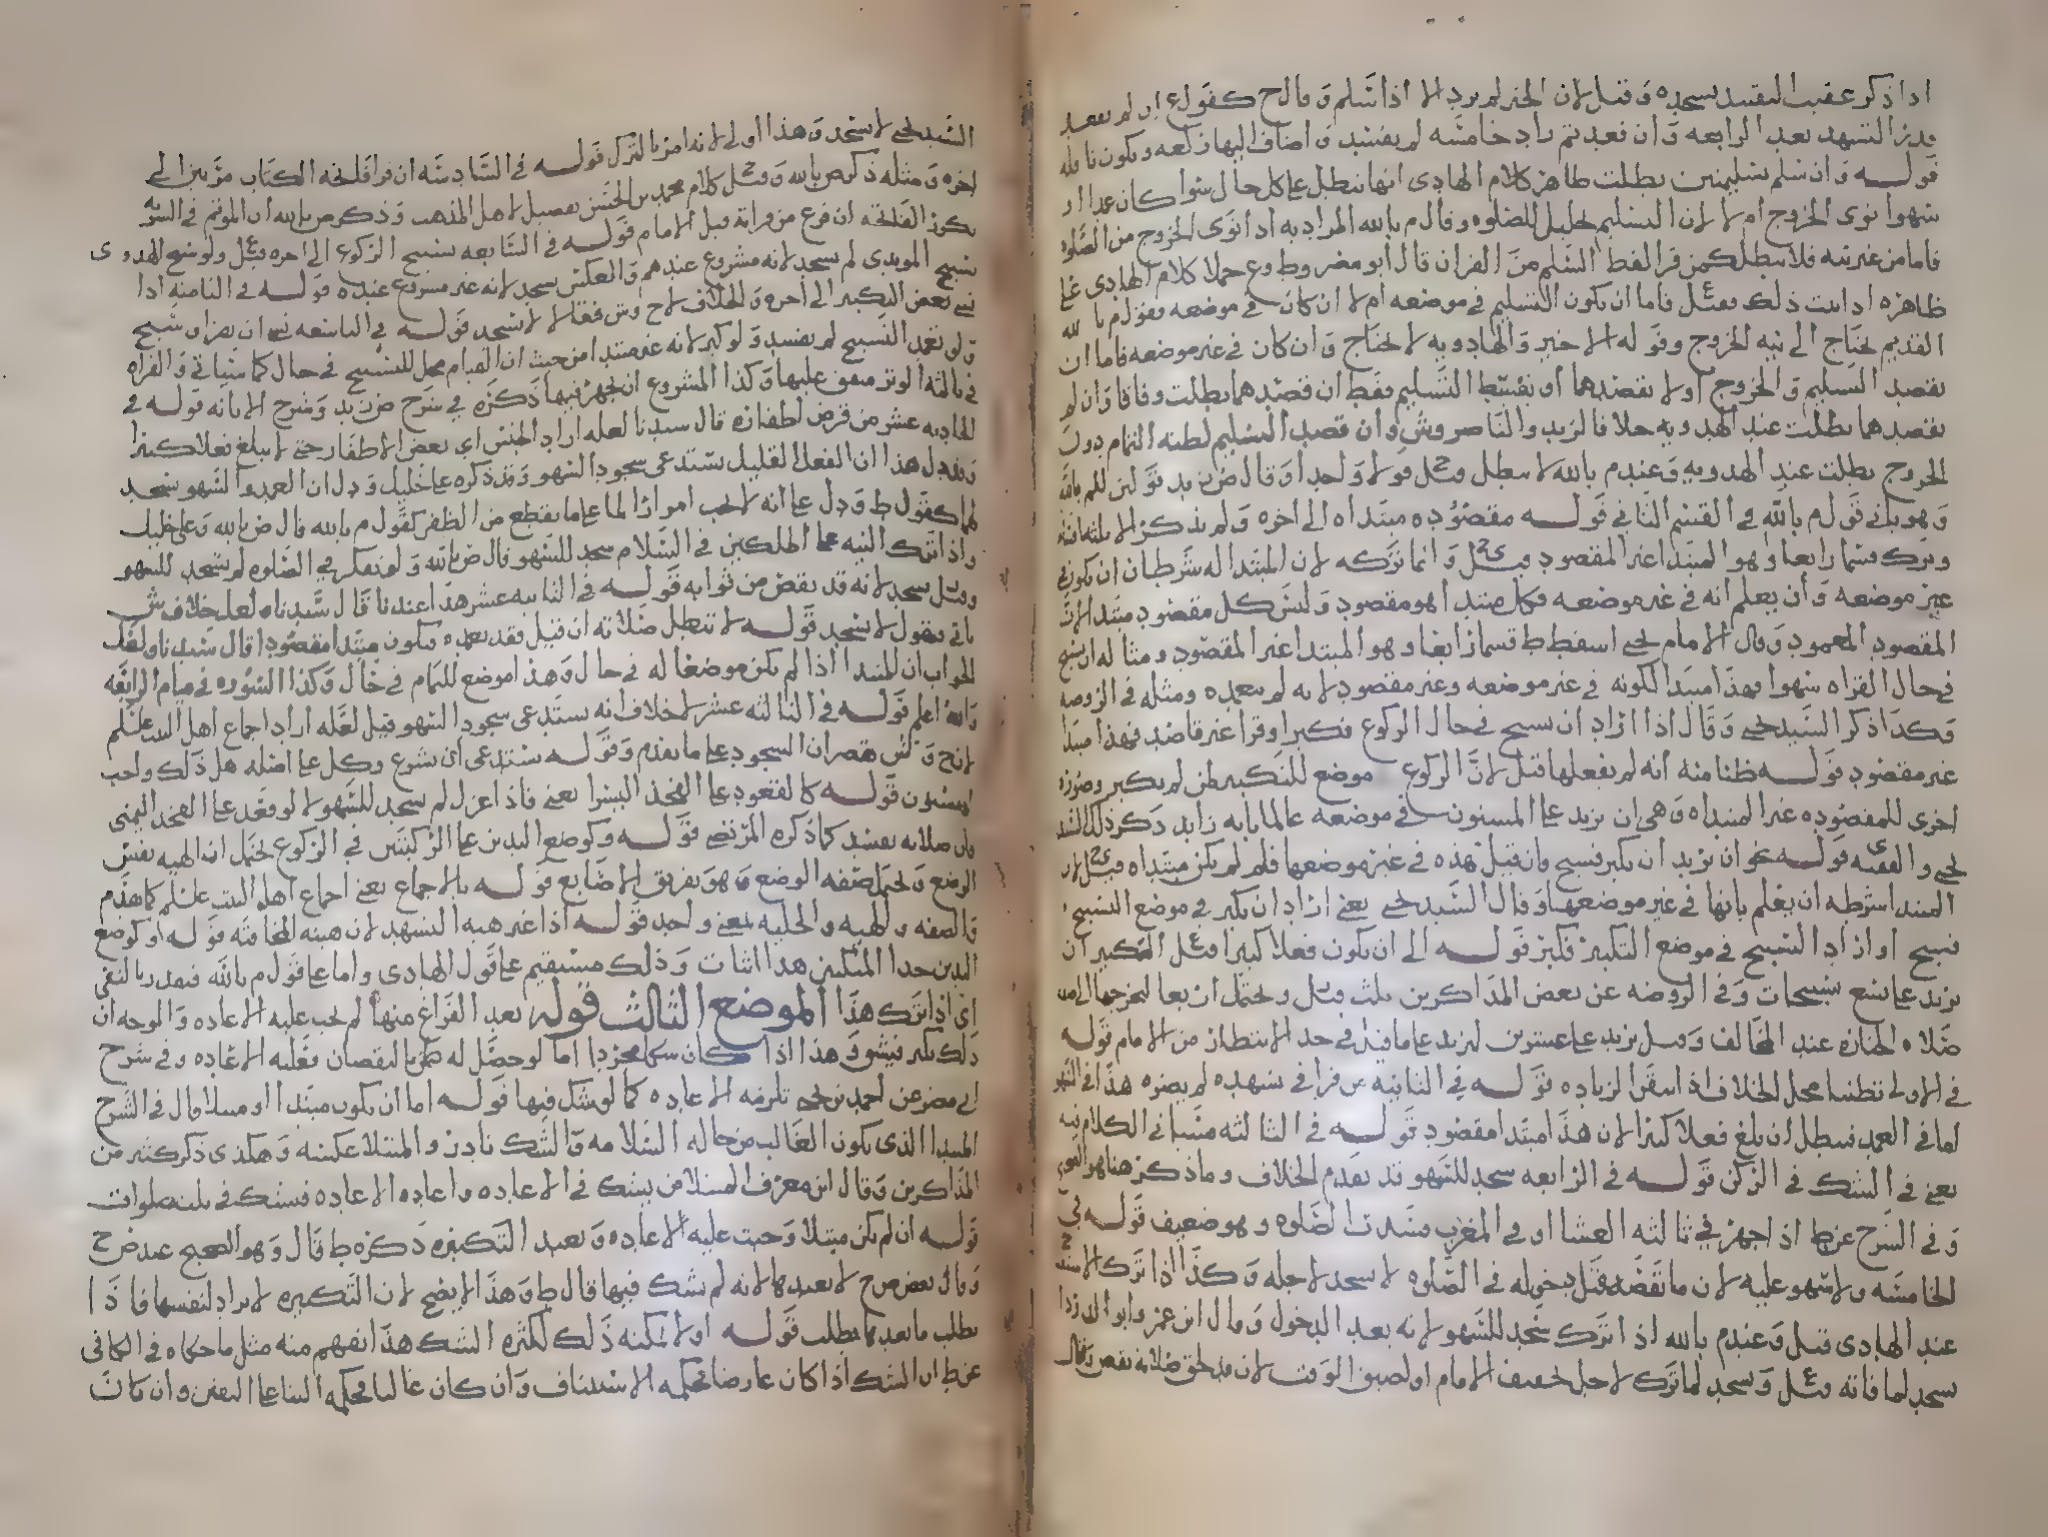 اذا ذكر عقيب التفسد بسجده وقيل لان الخبر لم يرد الا اذا سلم وقال ح كقول ع ان لم يقعد
قدر التشهد بعد الرابعه وان قعد ثم زاد خامسه لم يفسد واضاف اليها ركعه ويكون نافله
قوله وان سلم تسليمتين بطلت ظاهر كلام الهادي انها تبطل على كل حال سوا كان عمدا او
سهوا نوى الخروج ام لا لان التسليم تحليل للصلوه وقال م بالله المراد به اذا نوى الخروج من الصلوه
فاما من غير نيه فلا تبطل كمن قرا لفظ السلم من القران قال أبو مضر وط وع حملا كلام الهادي على
ظاهره اذا ثبت ذلك فاما ان يكون التسليم في موضعه ام لا ان كان في موضعه فقول م بالله
القديم يحتاج الى نيه الخروج وقوله الاخير والهادويه لا يحتاج وان كان في غير موضعه فاما ان
يقصد التسليم والخروج أو لا يقصدهما أو يقصد التسليم فقط ان قصدهما بطلت وفاقا وان لم
يقصدهما بطلت عند الهدويه خلافا لزيد والناصر وش وان قصد التسليم لظنه التمام دون
الخروج بطلت عند الهدويه وعند م بالله لا تبطل وقيل قولا واحدا وقال ض زيد قولين للم بالله
وهو يأتي قول م بالله في القسم الثاني قوله مقصوده مبتداه الى اخره ولم يذكر الا ثلثه
وترك قسما رابعا وهو المبتدا غير المقصود قيل وانما تركه لان المبتدا له شرطان ان يكون في
غير موضعه وأن يعلم أنه في غير موضعه فكل مبتدا فهو مقصود وليس كل مقصود مبتدا
المقصود المعمود وقال الامام يحيى اسقط ط قسما رابعا وهو المبتدا غير المقصود ومثاله ان يسبح
في حال القراه سهوا فهذا مبتدا لكونه في غير موضعه وغير مقصود لانه لم يتعمده ومثله في الروضه
وكذا ذكر السيد يحيى وقال اذا اراد أن يسبح في حال الركوع فكبر او قرا غير قاصد فهذا مبتدا
غير مقصود قوله ظنا منه أنه لم يفعلها قيل لان الركوع موضع للتكبير لمن لم يكبر وصوره
اخرى للمقصوده غير المبتداه وهي ان يزيد على المسنون في موضعه عالما بانه زايد ذكر ذلك السيد
يحيى والفقيه قوله نحو ان يريد ان يكبر فسبح وان قيل هذه في غير موضعها فلم لم يكن مبتداه قيل لان
المبتدا شرطه ان يعلم بانها في غير موضعها وقال السيد يحيى يعني اراد ان يكبر في موضع التسبيح
فسبح او اراد التسبيح في موضع التكبير فكبر قوله الى ان يكون فعلا كثيرا قيل التكبير ان
يزيد على سبع تسبيحات وفي الروضه عن بعض المذاكرين ثلث وقيل ويحتمل اربعا
صلاه الجنازه عند المخالف وقيل يزيد على عشرين لم يزيد على ما قيل في حد الانتظار من الامام قوله
في الاولى محل الخلاف اذا استقر الزياده قوله في الثانيه من قرا في تشهده لم يضره هذا في السهو
اما في العمد فتبطل ان بلغ فعلا كثيرا لان هذا مبتدا مقصود قوله في الثالثه سياتي الكلام فيه
يعني في الشك في الركن قوله في الرابعه سجد للسهو قد تقدم الخلاف وما ذكر هنا هو القوي
وفي الشرح عن ط اذا جهر في ثالثه العشا او في المغرب فسدت الصلوه وهو ضعيف قوله في
الخامسه ولا سهو عليه لان ما نقصه قبل دخوله في الصلوه لا يسجد لاجله وكذا اذا ترك
عند الهادي قيل وعند م بالله اذا ترك سجد للسهو لانه بعد الدخول وقال ابن عمر وابو
يسجد لما فاته وقيل ويسجد لما ترك لاجل تخفيف الامام او لضيق الوقت لان قد لحق صلاته نقص وقال
السيد يحيى لا يسجد وهذا اولى لانه امر بالترك قوله في السادسه ان قرا فاتحه الكتاب مرتين الى
اخره ومثله ذكر ض بالله وقيل كلام محمد بن الحسن تفصيل لاهل المذهب وذكر ض بالله ان الموتم في السريه
يكرر الفاتحه ان فرغ من قراته قبل الامام قوله في السابعه تسبيح الركوع الى اخره قيل ولو سبح الهدوي
تسبيح المويدي لم يسجد لانه مشروع عندهم والعكس يسجد لانه غير مشروع عنده قوله في الثامنه اذا
نسي بعض التكبير الى اخره والخلاف لاح وش فقالا لا يسجد قوله في التاسعه
ولو تعمد التسبيح لم يفسد ولو كبر لانه غير مبتدا من حيث ان القيام محل للتسبيح في حال كما سياتي والقراه
في ثالثه الوتر متفق عليها وكذا المشروع ان يجهر فيها ذكره في شرح ض زيد وشرح الابانه قوله في
الحاديه عشر من قرض اظفاره قال سيدنا لعله اراد الجنس اي بعض الاظفار حتى لا يبلغ فعلا كثيرا
ويدل هذا ان الفعل القليل يستدعي سجود السهو وقد ذكره على خليل ودل ان العمد والسهو يسجد
لهما كقول ط ودل على أنه لا يجب امرار الما على ما يقطع من الظفر كقول م بالله قال ض بالله وعلي خليل
واذا ترك النيه على الملكين في السلام سجد للسهو قال ض بالله ولو تفكر في الصلوه لم يسجد للسهو
وقيل يسجد لانه قد نقص من ثوابه قوله في الثانيه عشر هذا عندنا قال سيدنا لعل خلاف ش
ياتي فيقول لا يسجد قوله لا تبطل صلاته ان قيل فقد تعمده ويكون مبتدا مقصودا قال سيدنا ولعل
الجواب ان المبتدا اذا لم يكن موضعا له في حال وهذا موضع للتمام في حال وكذا السوره في قيام الرابعه
والله اعلم قوله في الثالثه عشر لا خلاف انه يستدعي سجود السهو قيل لعله اراد اجماع اهل البيت عليهم السلم
لان ح وش يقصران السجود على ما تقدم وقوله يستدعي أن يشرع وكل على اصله هل ذلك واجب
او مسنون قوله كالقعود على الفخذ اليسرا يعني فاذا عزل لم يسجد للسهو لا لو قعد على الفخذ اليمنى
فان صلاته تفسد كما ذكره المرتضى قوله وكوضع اليدين على الركبتين في الركوع يحتمل ان الهيه نفس
الوضع ويحتمل صفه الوضع وهو تفريق الاصابع قوله بالاجماع يعني اجماع أهل البيت عليهم السلم كما تقدم
والصفه والهيه والحليه بمعنى واحد قوله اذا غير هيه التشهد لان هيئه المخافته قوله او كوضع
اليدين حذا المنكبين هذا اثبات وذلك مستقيم على قول الهادي واما على قول م بالله فيقدر بالنفي
اي اذا ترك هذا الموضع الثالث قوله بعد الفراغ منها لم تجب عليه الاعاده والوجه ان
ذلك يكثر فيشق وهذا اذا كان شكا مجردا اما لو حصل له ظن بالنقصان فعليه الاعاده وفي شرح
ابي مضر عن احمد بن يحيى تلزمه الاعاده كما لو شك فيها قوله اما ان يكون مبتدا او مبتلا قال في الشرح
المبتدا الذي يكون الغالب من حاله السلامه والشك نادر والمبتلا عكسه وهكذى ذكر كثير من
المذاكرين وقال ابن معرف المبتلا من يشك في الاعاده واعاده الاعاده فيشك في ثلث صلوات
قوله ان لم يكن مبتلا وجبت عليه الاعاده ويعيد التكبيره ذكره ط قال وهو الصحيح عند ص ح
وقال بعض ص ح لا يعيدها لانه لم يشك فيها قال ط وهذا لا يصح لان التكبيره لا تراد لنفسها فاذا
بطلت ما بعدها بطلت قوله او لا يمكنه ذلك لكثره الشك هذا يفهم منه مثل ما حكاه في الكافي
عن ط ان الشك اذا كان عارضا فحكمه الاستيناف وان كان غالبا فحكمه البنا على اليقين وان كان